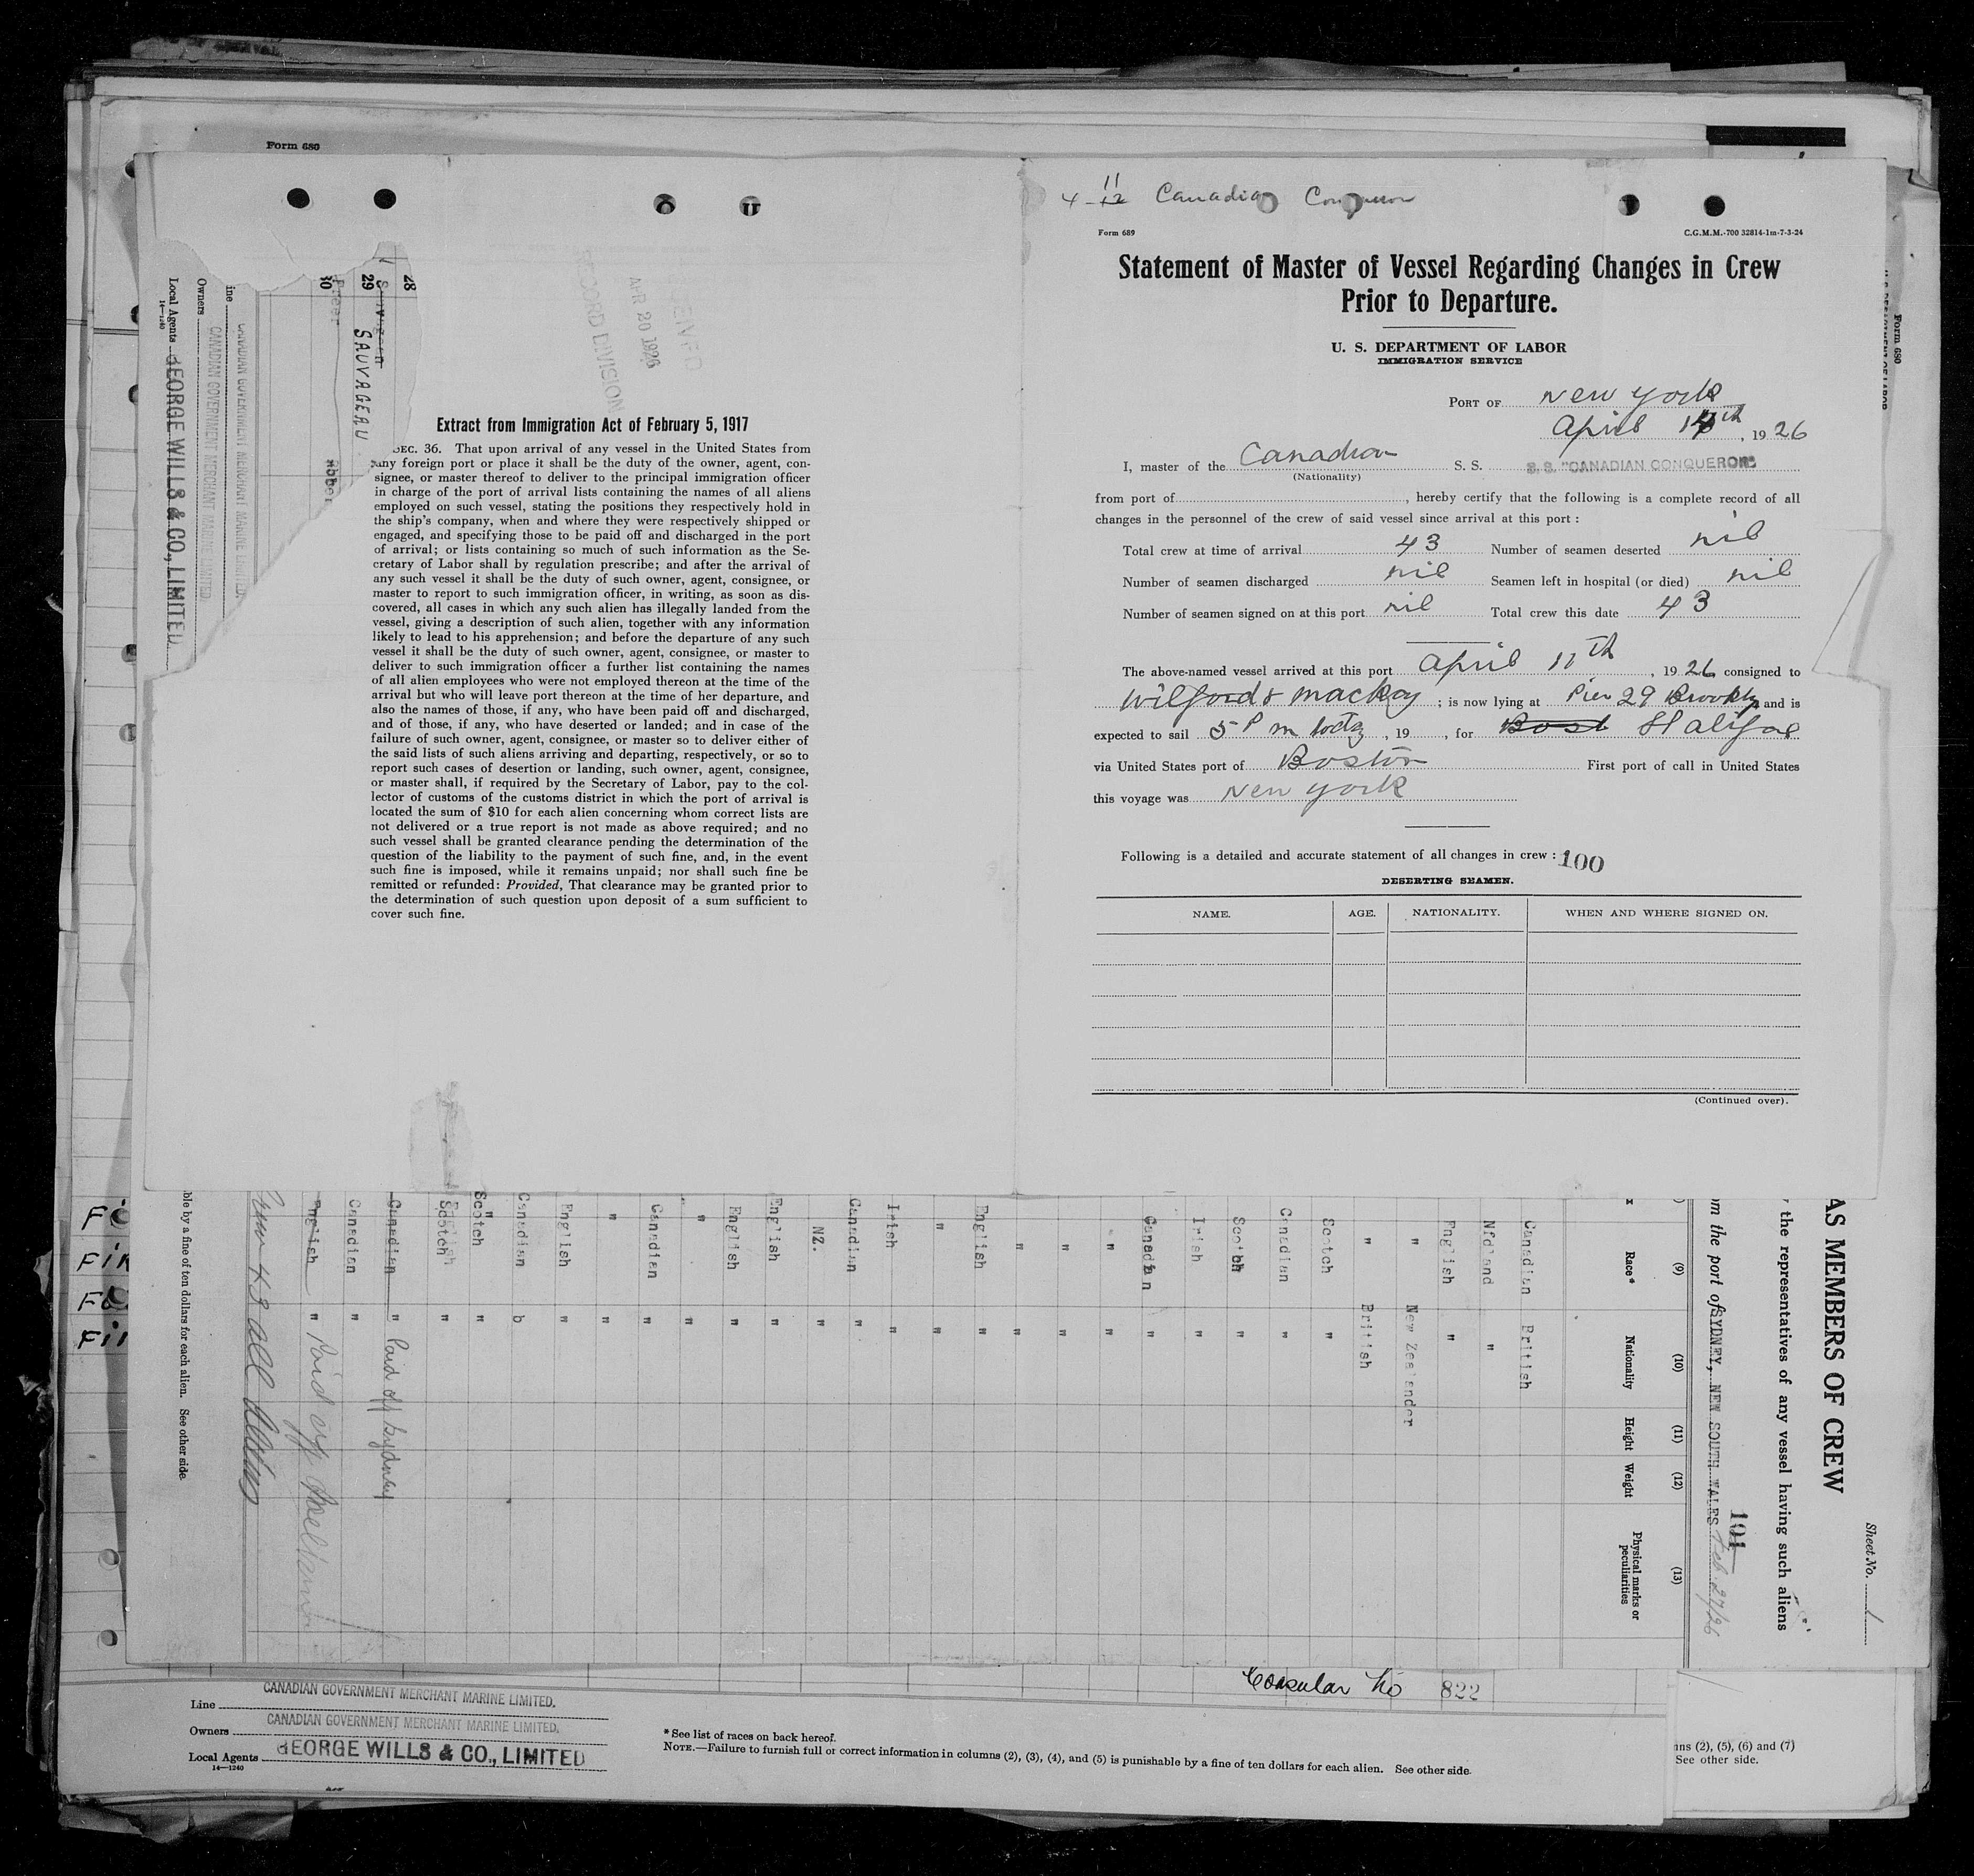 Form 680
4 - 11 12 Canadian Conqueror
Form 689
C.G.M.M.-700 32814-1m-7-3-24
Statement of Master of Vessel Regarding Changes in Crew
Prior to Departure.
U. S. DEPARTMENT OF LABOR
IMMIGRATION SERVICE
PORT OF New York
April 14th, 1926
I, master of the Canadian S. S. S.S. "CANADIAN CONQUEROR"
(Nationality)
from port of , hereby certify that the following is a complete record of all
changes in the personnel of the crew of said vessel since arrival at this port :
Total crew at time of arrival 43 Number of seamen deserted nil
Number of seamen discharged nil Seamen left in hospital (or died) nil
Number of seamen signed on at this port nil Total crew this date 43
The above-named vessel arrived at this port April 11th, 1926 consigned to
Wilford & Mackay ; is now lying at Pier 29 Brooklyn and is
expected to sail 5 P m today, 19 , for Bost Halifax
via United States port of Boston First port of call in United States
this voyage was New York
Following is a detailed and accurate statement of all changes in crew : 100
DESERTING SEAMEN.
NAME. AGE. NATIONALITY. WHEN AND WHERE SIGNED ON.
(Continued over).
RECORD DIVISION
APR 20 1926
Extract from Immigration Act of February 5, 1917
SEC. 36. That upon arrival of any vessel in the United States from
any foreign port or place it shall be the duty of the owner, agent, con-
signee, or master thereof to deliver to the principal immigration officer
in charge of the port of arrival lists containing the names of all aliens
employed on such vessel, stating the positions they respectively hold in
the ship's company, when and where they were respectively shipped or
engaged, and specifying those to be paid off and discharged in the port
of arrival; or lists containing so much of such information as the Se-
cretary of Labor shall by regulation prescribe; and after the arrival of
any such vessel it shall be the duty of such owner, agent, consignee, or
master to report to such immigration officer, in writing, as soon as dis-
covered, all cases in which any such alien has illegally landed from the
vessel, giving a description of such alien, together with any information
likely to lead to his apprehension; and before the departure of any such
vessel it shall be the duty of such owner, agent, consignee, or master to
deliver to such immigration officer a further list containing the names
of all alien employees who were not employed thereon at the time of the
arrival but who will leave port thereon at the time of her departure, and
also the names of those, if any, who have been paid off and discharged,
and of those, if any, who have deserted or landed; and in case of the
failure of such owner, agent, consignee, or master so to deliver either of
the said lists of such aliens arriving and departing, respectively, or so to
report such cases of desertion or landing, such owner, agent, consignee,
or master shall, if required by the Secretary of Labor, pay to the col-
lector of customs of the customs district in which the port of arrival is
located the sum of $10 for each alien concerning whom correct lists are
not delivered or a true report is not made as above required; and no
such vessel shall be granted clearance pending the determination of the
question of the liability to the payment of such fine, and, in the event
such fine is imposed, while it remains unpaid; nor shall such fine be
remitted or refunded: Provided, That clearance may be granted prior to
the determination of such question upon deposit of a sum sufficient to
cover such fine.
28
29 SAUVAGEAU
30 Freer
ine CANADIAN GOVERNMENT MERCHANT MARINE LIMITED.
Owners CANADIAN GOVERNMENT MERCHANT MARINE LIMITED.
Local Agents GEORGE WILLS & CO., LIMITED
14—1240
Form 680
AS MEMBERS OF CREW
Sheet No. 1
the representatives of any vessel having such aliens
om the port of SYDNEY, NEW SOUTH WALES Feb 27/26
101
(9) (10) (11) (12) (13)
Race* Nationality Height Weight Physical marks or peculiarities
Canadian British
Nfdland "
English "
" New Zealander
" British
Scotch "
Canadian "
Scotch "
Irish "
Canadian "
" "
" "
" "
English "
" "
Irish "
Canadian "
NZ. "
English "
English "
" "
Canadian "
" "
English "
Canadian b
Scotch "
Scotch "
Canadian " Paid off Sydney
Canadian "
English " Paid off
43 all
ble by a fine of ten dollars for each alien. See other side.
Consular No 822
Line CANADIAN GOVERNMENT MERCHANT MARINE LIMITED.
Owners CANADIAN GOVERNMENT MERCHANT MARINE LIMITED.
Local Agents GEORGE WILLS & CO., LIMITED
14—1240
* See list of races on back hereof.
NOTE.—Failure to furnish full or correct information in columns (2), (3), (4), and (5) is punishable by a fine of ten dollars for each alien. See other side.
ns (2), (5), (6) and (7)
See other side.